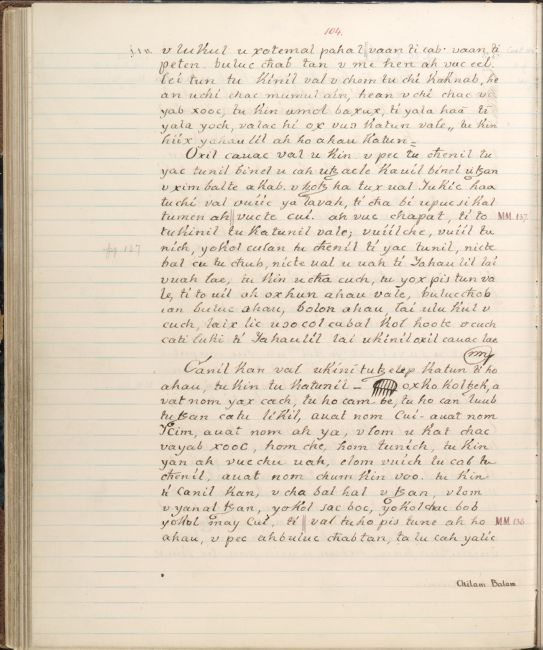 104.
v lukul u xotemal pahal vaan ti cab. vaan, ti
peten. buluc chab tan v me hen ah vuc ecel.
lei tun tu kinil val v chom tu chi kaknab, he
an uchi chac mumul ain, hean v chi chac va
yab xooc, tu kin umol baxux, ti yala haa ti
yala yoch, valac hi ox vuɔ katun vale,, tu kin
hiix yahaulil ah ho ahau katun=
Oxil cauac val u kin v pec tu chenil tu
yac tunil binel u cah utzacle kauil binel utzan
v xim balte akab. v hotz ha tux ual Yukic haa
tuchi val ouiic ya lavah, ti cha bi upucsikal
tumen ah vucte cui. ah vuc chapat, ti to MM. 137.
tukinil tu katunil vale; vuiilche, vuiil tu
pg. 127
nich, yokol culan tu chenil ti yac tunil, nicte
bal cu tu chub, nicte ual u uah ti Yahaulil lai
vuah lae, tu kin ucha cuch, tu yox pis tun va
le, ti to uil ah oxhun ahau vale, buluc chob
tan buluc ahau, bolon ahau, lai ulu kul v
cuch, laix lic uɔocol cabal kol hootc v cuch
catilukiti Yahaulil lai ukinil oxil cauac lae
Canil kan val ukini tutzelep katun ti ho
ahau, tu kin tu katunil — oxko koltzek, a
vat nom yax cach, tu ho cam be, tu ho can luub
tutzan catu likil, auat nom Cui- auat nom
Ycim, auat nom ah ya, v lom u kat chac
vayab xooc, hom che, hom tunich, tu kin
yan ah vuc chu uah, elom vuich tu cab tu
chenil, auat nom chum kin voo. tu kin
ti Canil kan, v cha bal kal v tzan, v lom
v yanal tzan, yokol sac boc, yokol chuc bob
yokol may Cui, ti val tuho pis tune ah ho MM. 138.
ahau, v pec ahbuluc chabtan, talu cah yalic
Chilam Balam